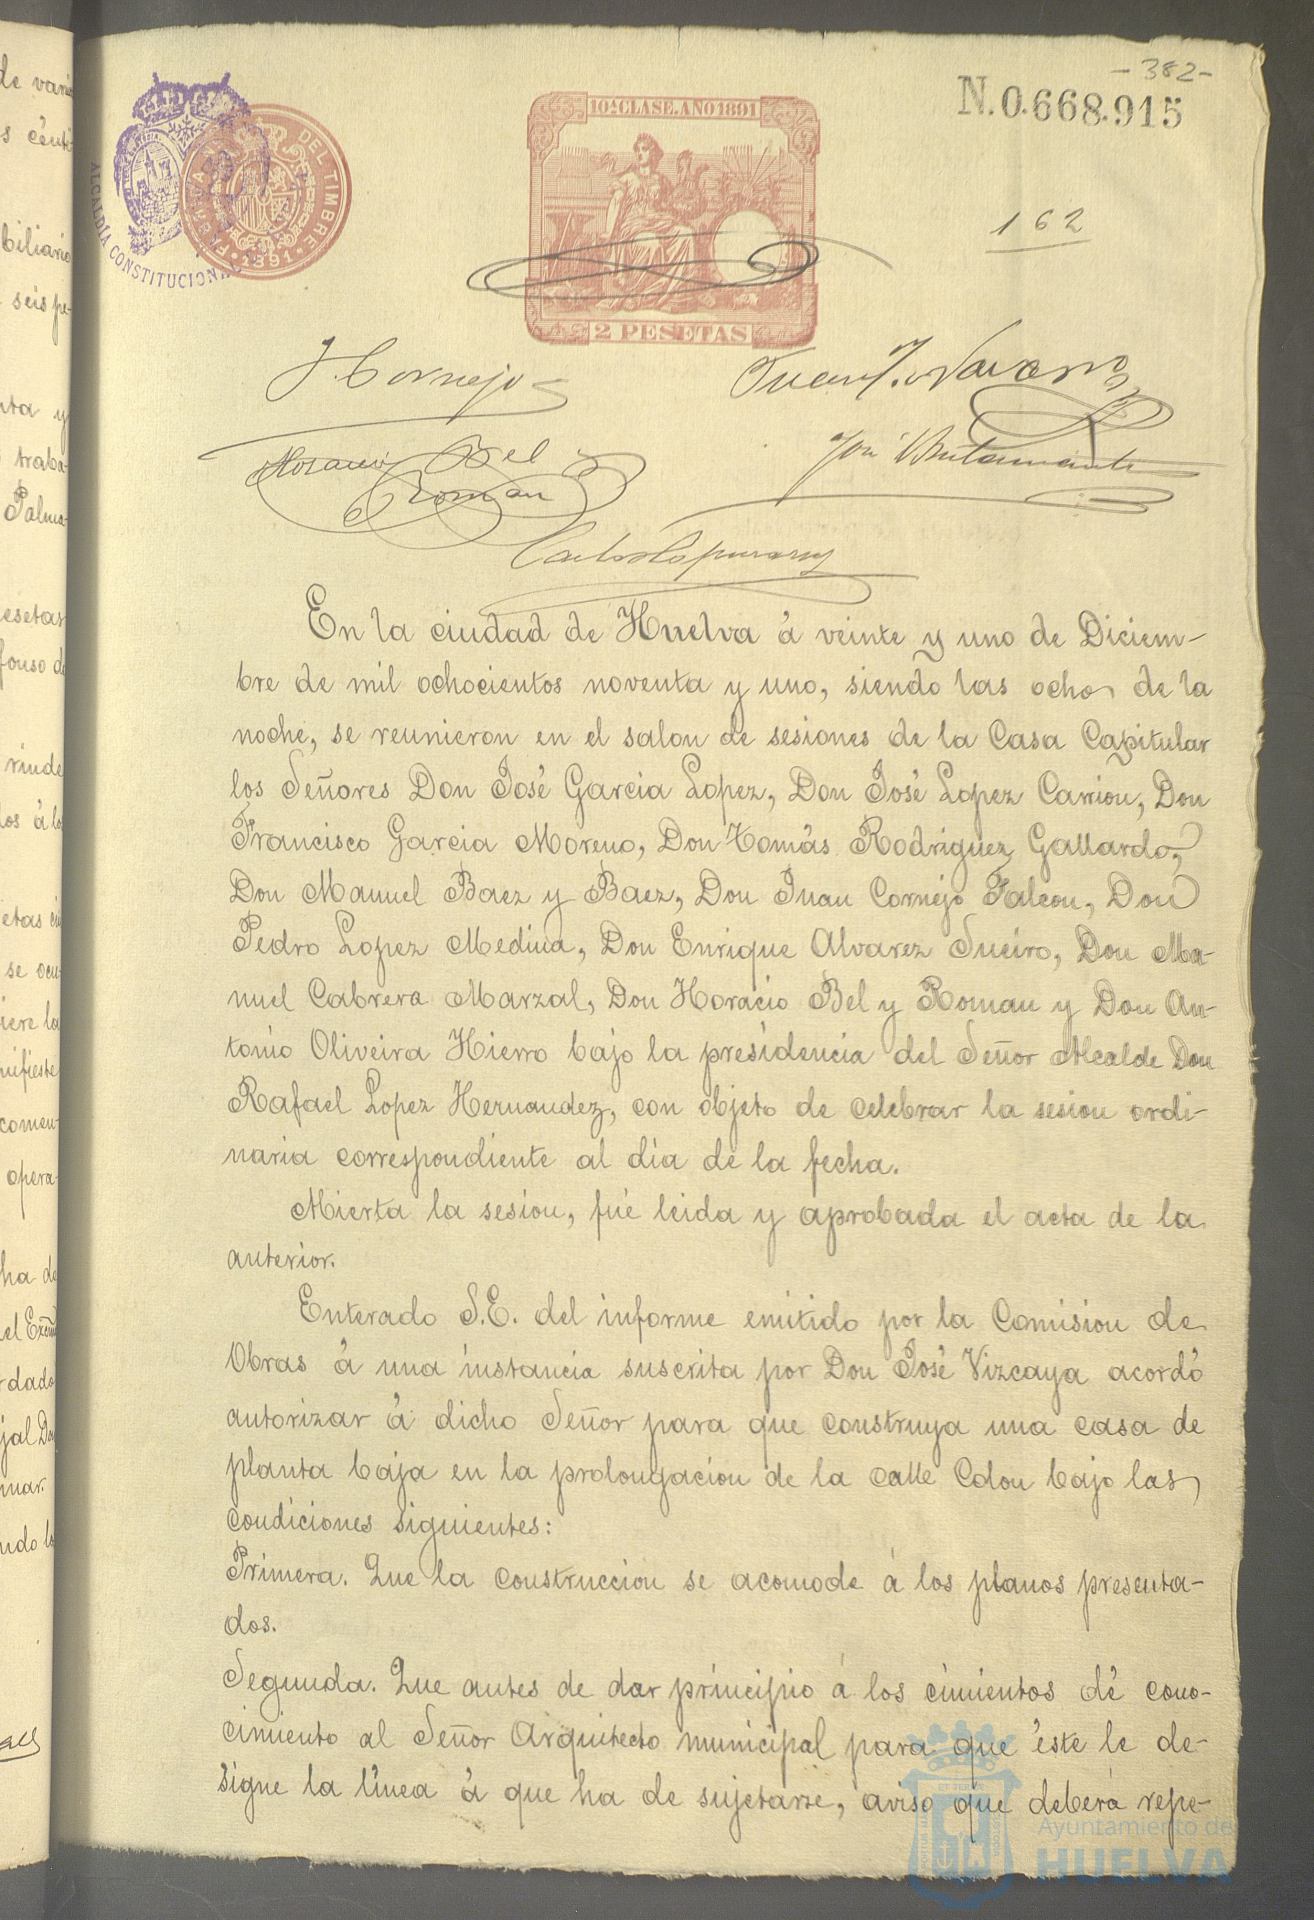 - 382 -
N.0.668.915
10ª CLASE. AÑO 1891
162
ALCALDÍA CONSTITUCIONAL
DEL TIMBRE
1891
2 PESETAS
J. Cornejo
Juan J. Navarro
Horacio Bel
Roman
José Bustamante
En la ciudad de Huelva á veinte y uno de Diciem-
bre de mil ochocientos noventa y uno, siendo las ocho de la
noche, se reunieron en el salon de sesiones de la Casa Capitular
los Señores Don José Garcia Lopez, Don José Lopez Carrion, Don
Francisco Garcia Moreno, Don Tomás Rodriguez Gallardo,
Don Manuel Baez y Baez, Don Juan Cornejo Falcon, Don
Pedro Lopez Medina, Don Enrique Alvarez Sueiro, Don Ma-
nuel Cabrera Marzal, Don Horacio Bel y Roman y Don An-
tonio Oliveira Hierro bajo la presidencia del Señor Alcalde Don
Rafael Lopez Hernandez, con objeto de celebrar la sesion ordi-
naria correspondiente al día de la fecha.
Abierta la sesion, fué leida y aprobada el acta de la
anterior.
Enterado S.E. del informe emitido por la Comision de
Obras á una instancia suscrita por Don José Vizcaya acordó
autorizar á dicho Señor para que construya una casa de
planta baja en la prolongacion de la calle Colon bajo las
condiciones siguientes:
Primera. Que la construccion se acomode á los planos presenta-
dos.
Segunda. Que antes de dar principio á los cimientos dé cono-
cimiento al Señor Arquitecto municipal para que éste le de-
signe la línea á que ha de sujetarse, aviso que deberá repe-
Ayuntamiento de
HUELVA